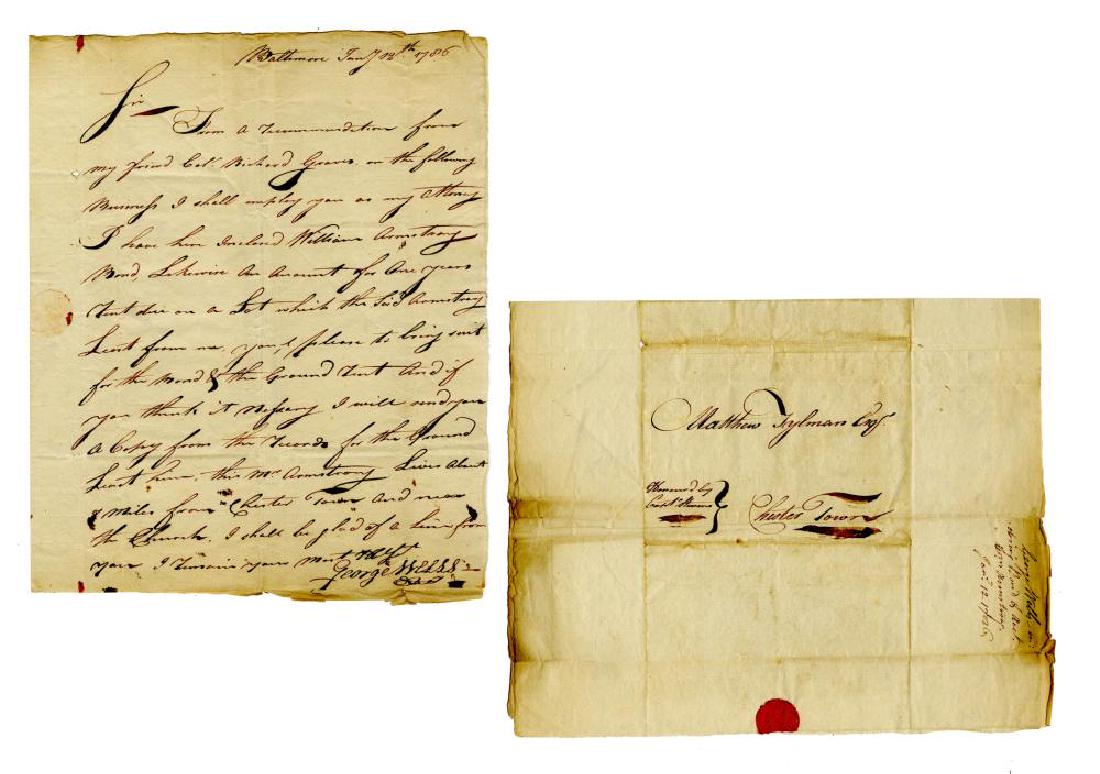 Baltimore Jany 12th 1786
Sir
From a Recommendation from
my friend Col. Richard Graves on the following
Business I shall employ you as my Attorney
I have here Inclosed William Armstrong
Bond, Likewise An Account for One years
Rent due on a Lot which the Said Armstrong
Least from me, you, please to bring suit
for the Bond & the Ground Rent And if
you think it Nessery I will send you
A Copy from the Records for the Ground
Least here, this Mr Armstrong Lives About
8 miles from Chester Town And near
the Church. I shall be glad of a Line from
you. I Remain yours Most
George Wells
Matthew Tylman Esqr.
Honored by
Chester Town
George Wells on
Wm Armstrong.
Jany 12. 1786